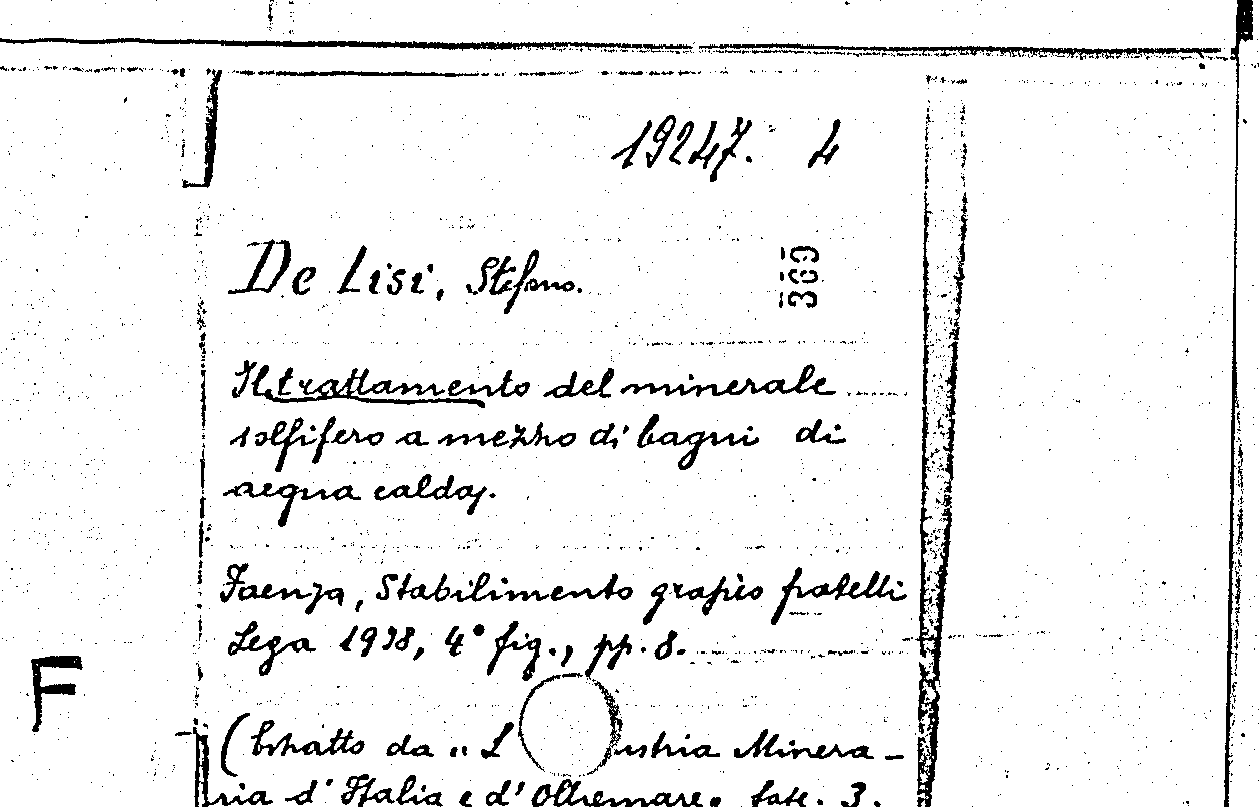 19247. 4
De Lisi, Stefano.
369
Il trattamento del minerale
solfifero a mezzo di bagni di
acqua calda.
Faenza, Stabilimento grafico fratelli
Lega 1938, 4° fig., pp. 8.
F
(Estratto da "L ustria Minera-
ria d'Italia e d'Oltremare" fasc. 3.